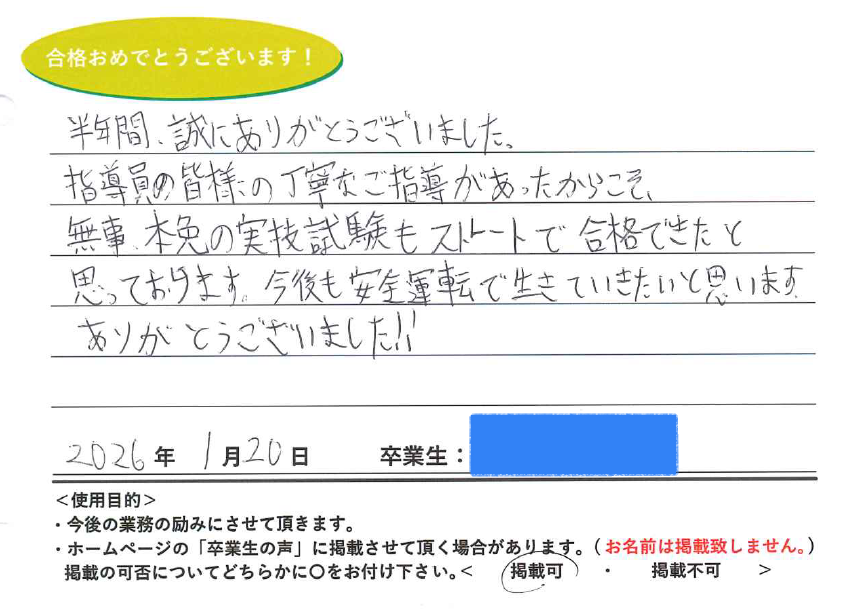 合格おめでとうございます！
半年間、誠にありがとうございました。
指導員の皆様の丁寧なご指導があったからこそ、
無事、本免の実技試験もストレートで合格できたと
思っております。今後も安全運転で生きていきたいと思います。
ありがとうございました!!
2026年 1月20日 卒業生：
＜使用目的＞
・今後の業務の励みにさせて頂きます。
・ホームページの「卒業生の声」に掲載させて頂く場合があります。（お名前は掲載致しません。）
掲載の可否についてどちらかに〇をお付け下さい。＜ 掲載可 ・ 掲載不可 ＞